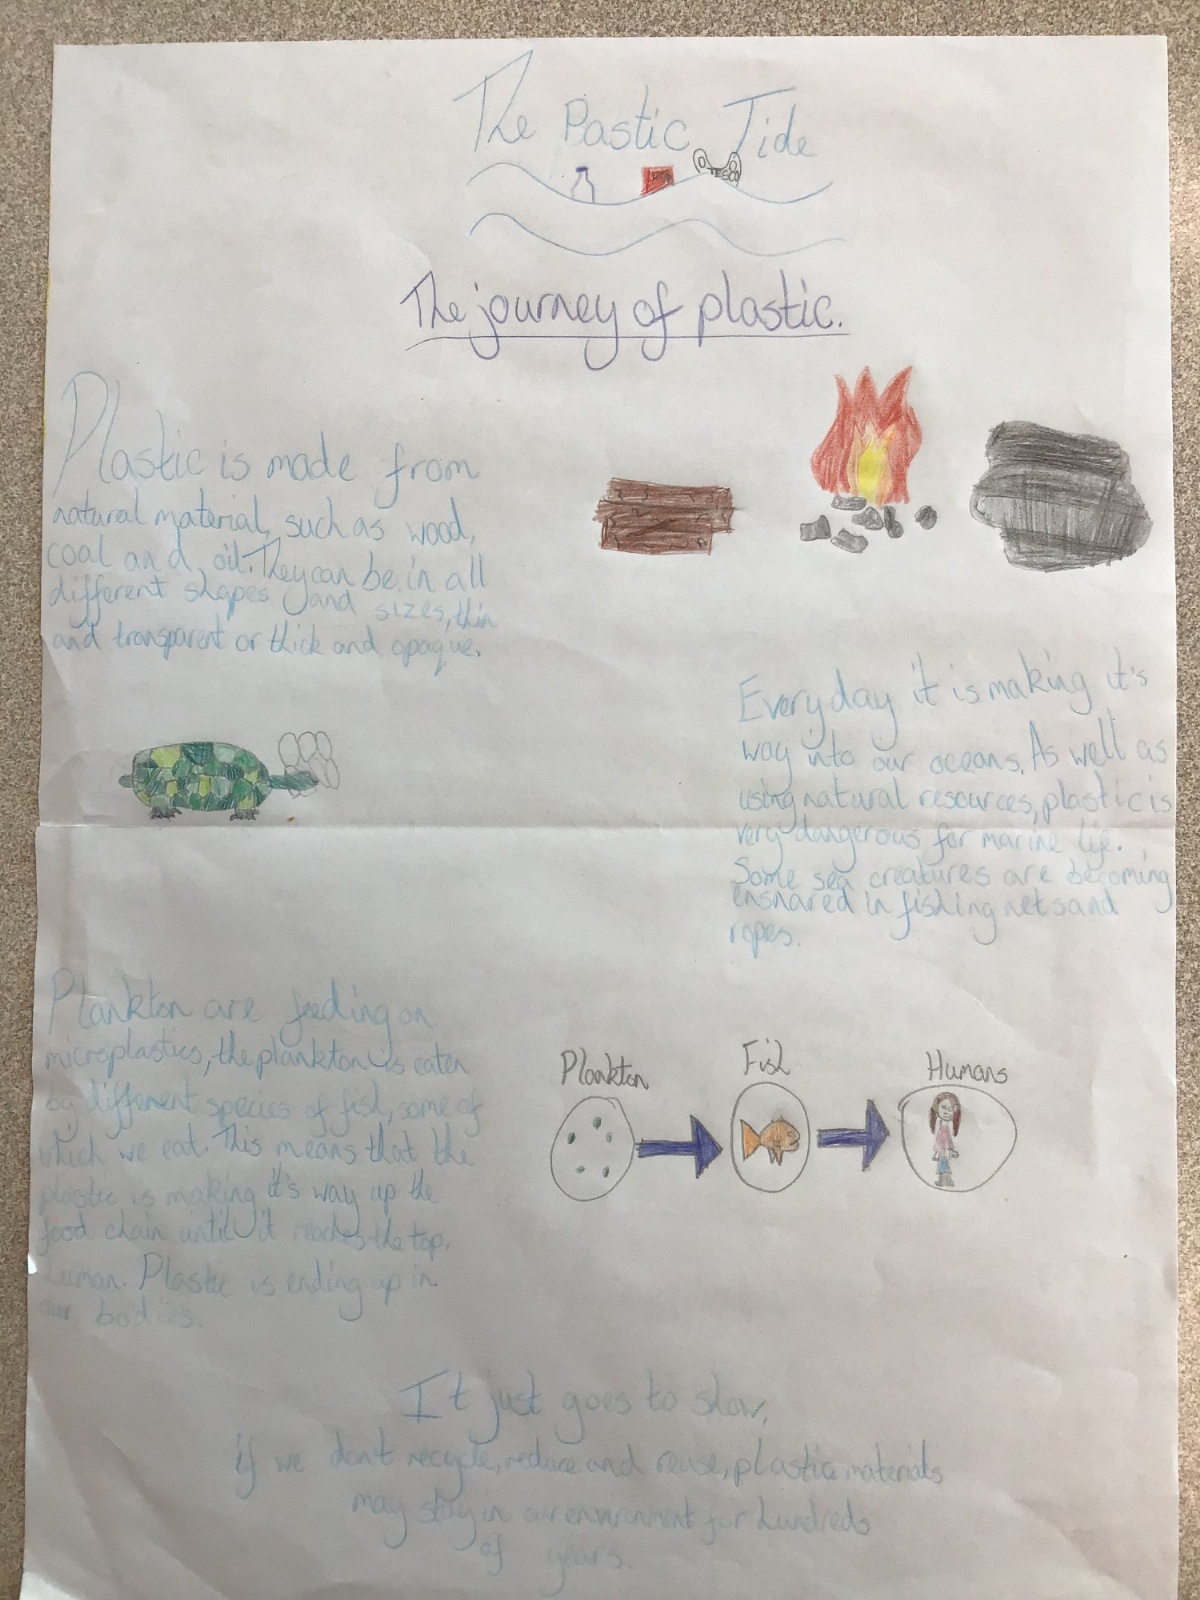 The Pastic Tide
The journey of plastic.
Plastic is made from
natural material, such as wood,
coal and oil. They can be in all
different shapes and sizes, thin
and transparent or thick and opaque.
Every day it is making it's
way into our oceans. As well as
using natural resources, plastic is
very dangerous for marine life.
Some sea creatures are becoming
ensnared in fishing nets and
ropes.
Plankton are feeding on
microplastics, the plankton is eaten
by different species of fish, some of
which we eat. This means that the
plastic is making it's way up the
food chain until it reaches the top,
human. Plastic is ending up in
our bodies.
Plankton
Fish
Humans
It just goes to show,
if we don't recycle, reduce and reuse, plastic materials
may stay in our environment for hundreds
of years.